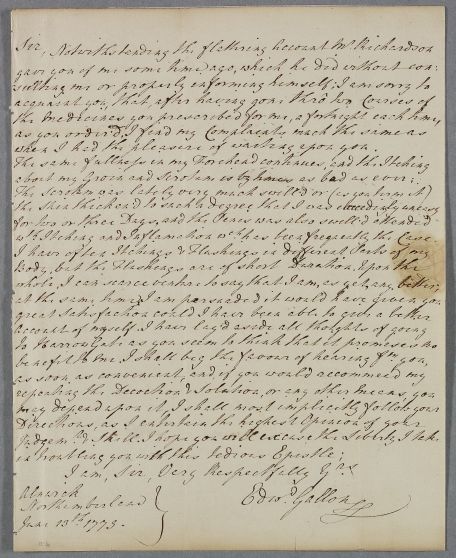 Sir, Notwithstanding the flattering Account Mr. Richardson
gave you of me some time ago, which he did without con-
sulting me or properly informing himself; I am sorry to
acquaint you, that, after having gone thro two Courses of
the Medicines you prescribed for me, a fortnight each time,
as you order'd, I find my Complaints much the same as
when I had the pleasure of waiting upon you.
The same fullness in my Forehead continues, and the Itching
about my Groin and Scrotum is by times as bad as ever.
The Scrotum was lately very much swell'd or (as you term it)
the Skin thicken'd to such a degree that I was uneasy
for two or three Days, and the Penis was also swell'd attended
wth Itching and Inflamation wch has been frequently the Case.
I have often Itchings & Flushings in different Parts of my
Body, but the Flushings are of short Duration, Upon the
whole, I can scarce venture to say that I am, as yet, any better,
at the same time I am persuaded it would have given you
great Satisfaction could I have been able to give a better
account of myself. I have lay'd aside all thoughts of going
to Harrowgate as you seem to think that it promises no
benefit to me. I shall beg the favour of hearing fm you,
as soon as convenient, and if you would recommend my
repeating the Decoction & Solution, or any other means, you
may depend upon it, I shall most implicitly follow your
Directions, as I entertain the highest Opinion of your
Judgemt. I hope you will excuse the Liberty I take
in troubling you with this tedious Epistle;
I am, Sir, Very Respectfully Yrs
Alnwick
Northumberland
June 13th 1773.
Edwd Gallon